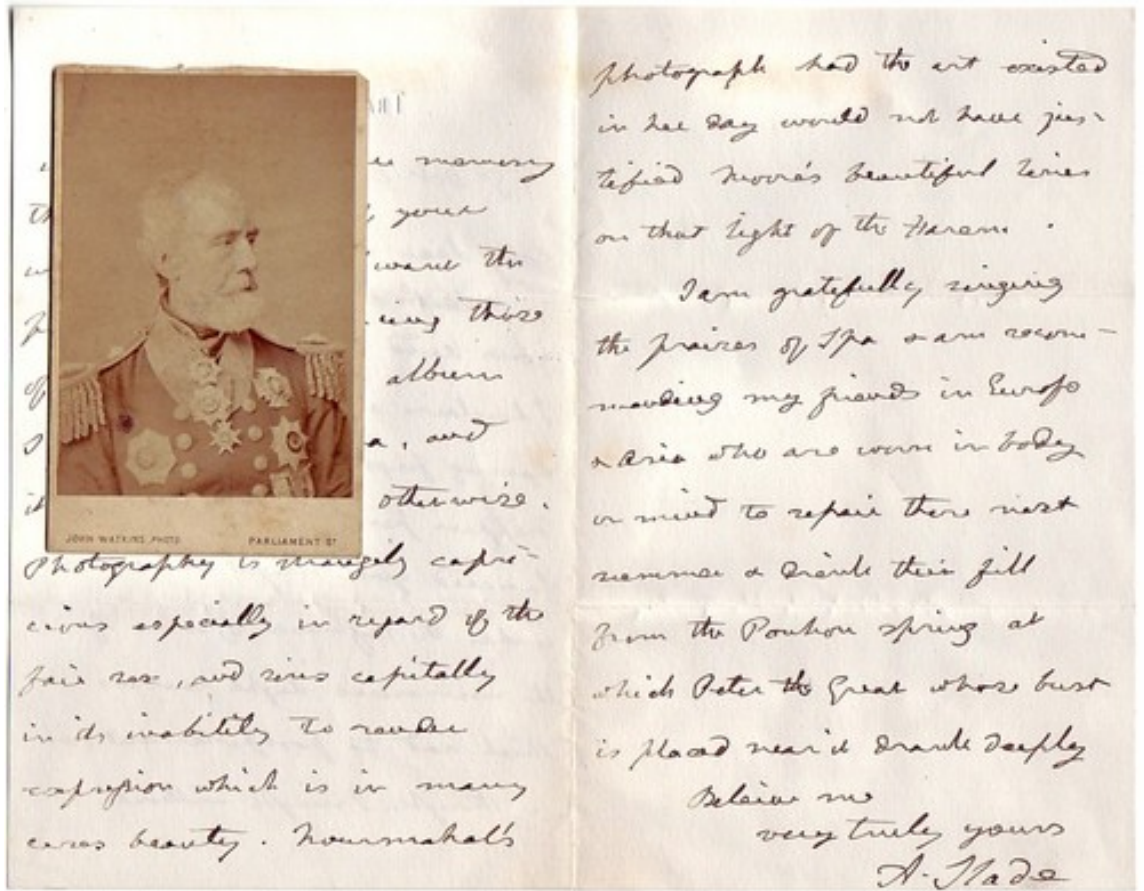 morning
yours
want the
those
album
, and
otherwise.
JOHN WATKINS PHOTO. PARLIAMENT ST
Photography is strangely capri-
cious especially in regard of the
fair sex, and sins capitally
in its inability to render
expression which is in many
cases beauty. Nourmahal's
photograph had the art existed
in her day would not have jus-
tified Moore's beautiful lines
on that light of the Harem.
I am gratefully singing
the praises of Spa & am recom-
mending my friends in Europe
& Asia who are worn in body
or mind to repair there next
summer & drink their fill
from the Pouhon spring at
which Peter the Great whose bust
is placed near it drank deeply
Believe me
very truly yours
A. Slade